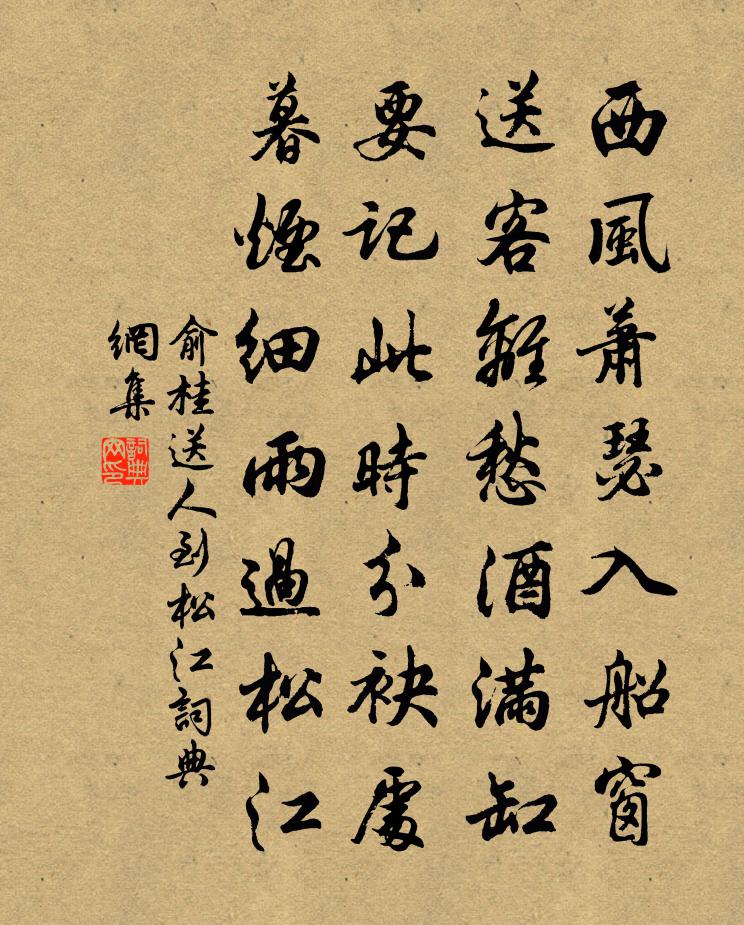 西風蕭瑟入船窗
送客離愁酒滿缸
要記此時分袂處
暮煙細雨過松江
俞桂送人到松江詞典
網集
詞典
网印